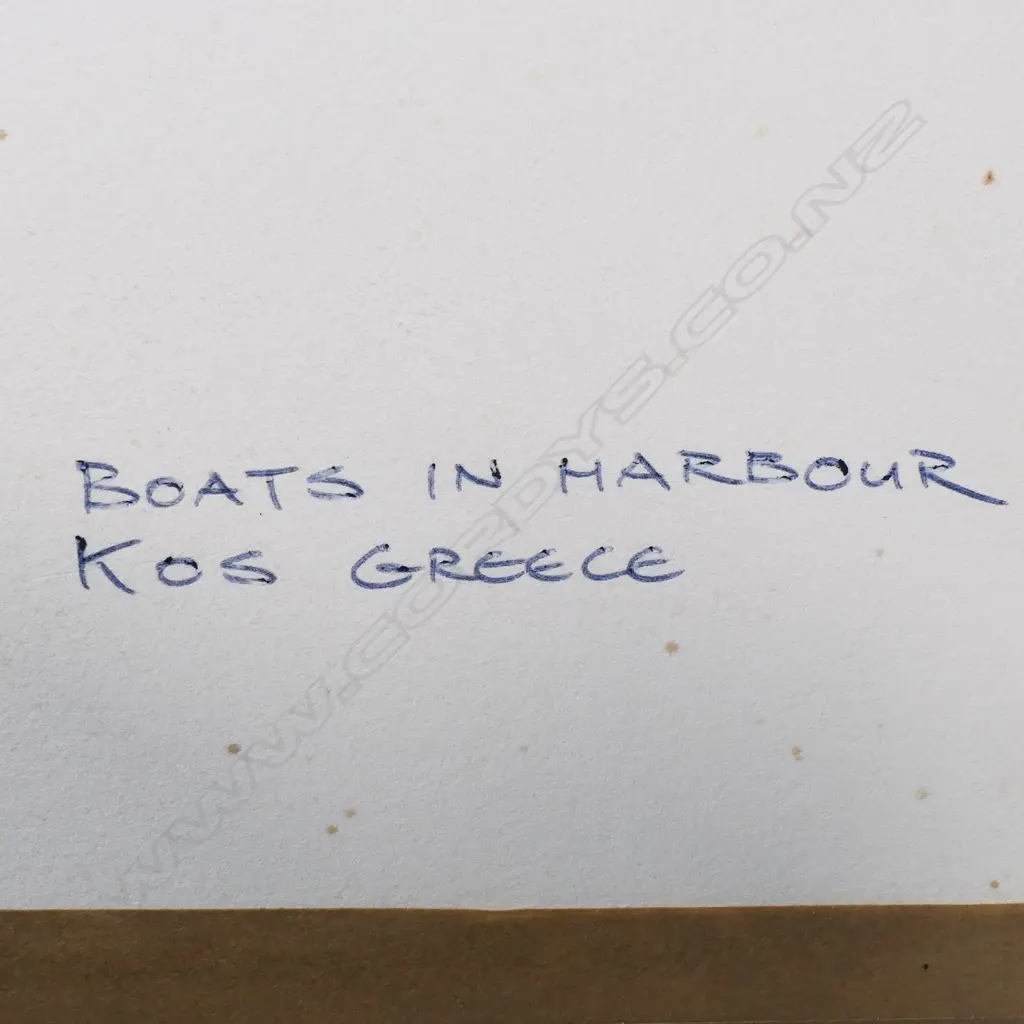 BOATS IN HARBOUR
KOS GREECE
WWW.CORDYS.CO.NZ